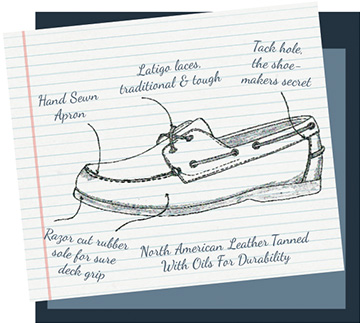 Tack hole,
the shoe-
makers secret
Latigo laces,
traditional & tough
Hand Sewn
Apron
Razor cut rubber
sole for sure
deck grip
North American Leather Tanned
With Oils For Durability